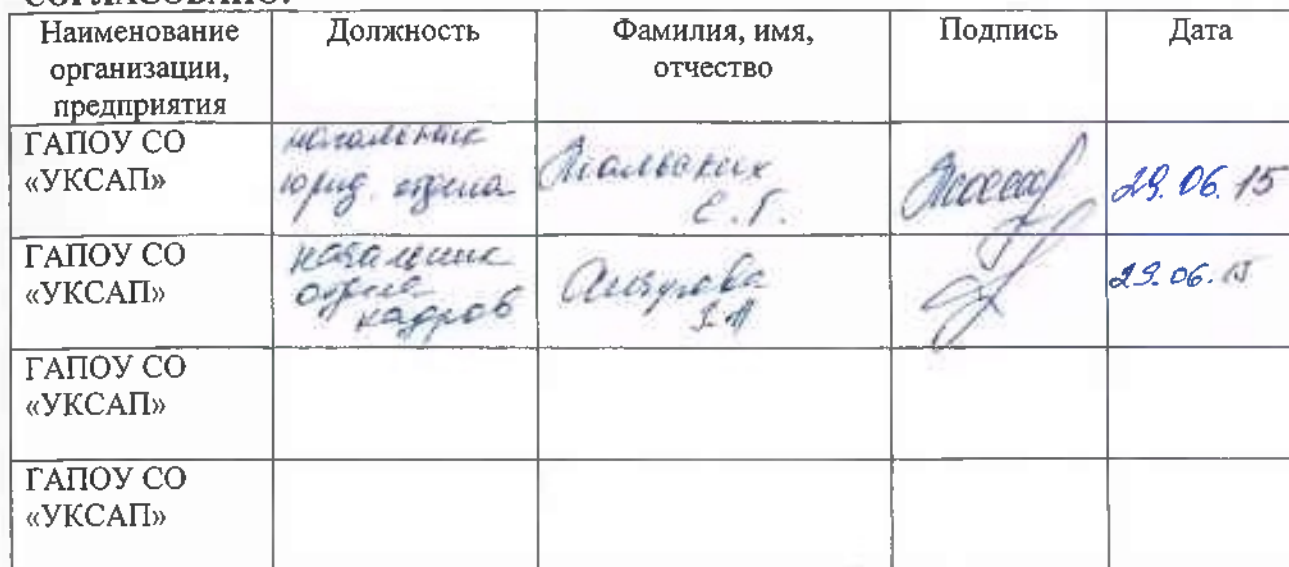 СОГЛАСОВАНО:
Наименование организации, предприятия Должность Фамилия, имя, отчество Подпись Дата
ГАПОУ СО «УКСАП»
начальник
юрид. отдела
Е.Г.
29.06.15
ГАПОУ СО «УКСАП»
начальник
отдела
кадров
29.06.15
ГАПОУ СО
«УКСАП»
ГАПОУ СО
«УКСАП»